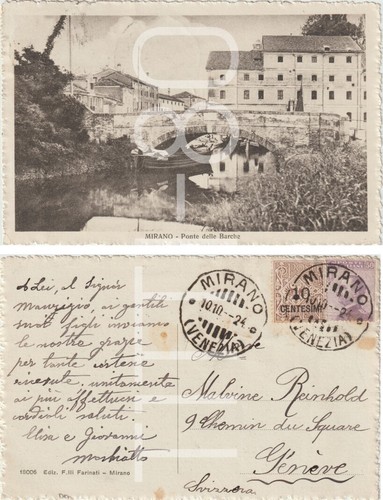 MIRANO - Ponte delle Barche
A Lei, al Signor
Maurizio, ai gentili
suoi figli inviamo
le nostre grazie
per tante cortesie
ricevute, unitamente
ai più affettuosi e
cordiali saluti
Elisa e Giovanni
10006 Ediz. F.lli Farinati - Mirano
MIRANO
10.10.-24
(VENEZIA)
MIRANO
10.10.-24
(VENEZIA)
10
CENTESIMI
Malvine Reinhold
9 Chemin du Square
Genève
Svizzera